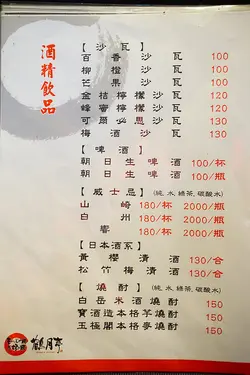 酒精飲品
【沙瓦】
百香沙瓦 100
柳橙沙瓦 100
芒果沙瓦 100
金桔檸檬沙瓦 120
蜂蜜檸檬沙瓦 120
可爾必思沙瓦 130
梅酒沙瓦 130
【啤酒】
朝日生啤酒 100/杯
朝日啤酒 100/瓶
【威士忌】(純, 水, 綠茶, 碳酸水)
山崎 180/杯 2000/瓶
白州 180/杯 2000/瓶
響 180/杯 2000/瓶
【日本酒系】
黃櫻清酒 130/合
松竹梅清酒 130/合
【燒酎】(純, 水, 綠茶, 碳酸水)
白岳米酒燒酎 150
寶酒造本格芋燒酎 150
玉極閣本格麥燒酎 150
月亭